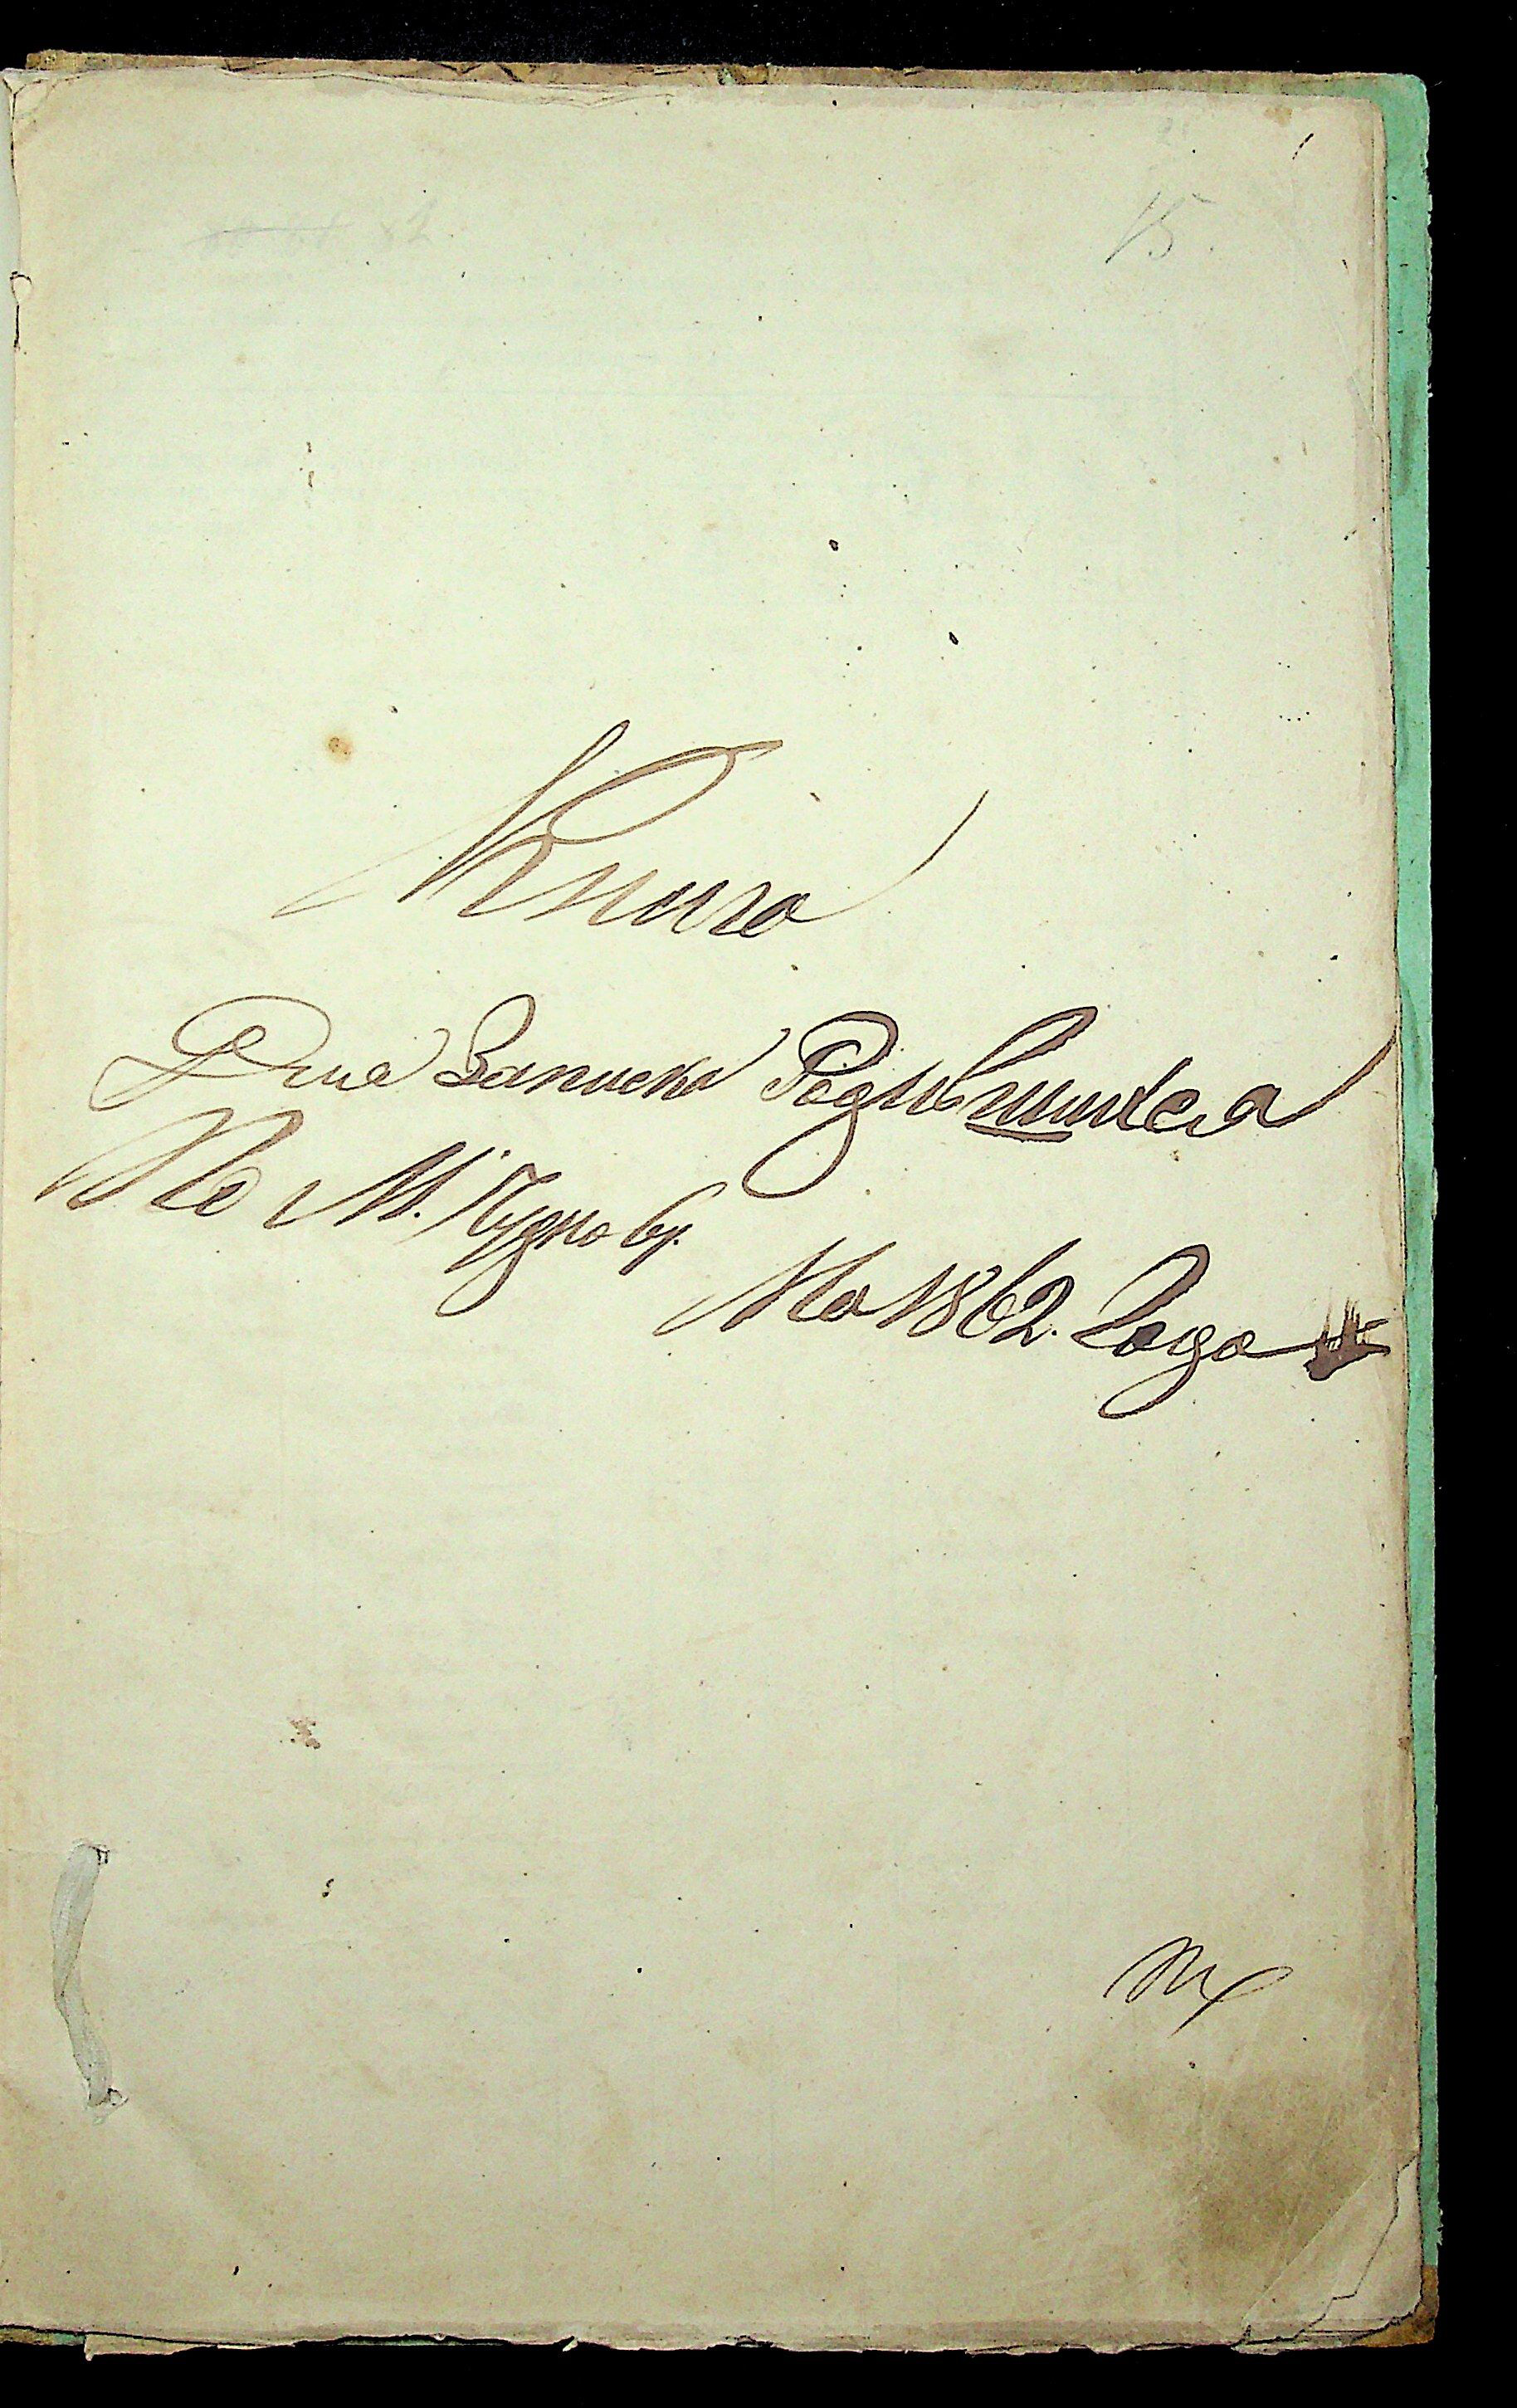 1
15.
Книга
Для Записки Родившихся
По М. Чуднову
На 1862. Года